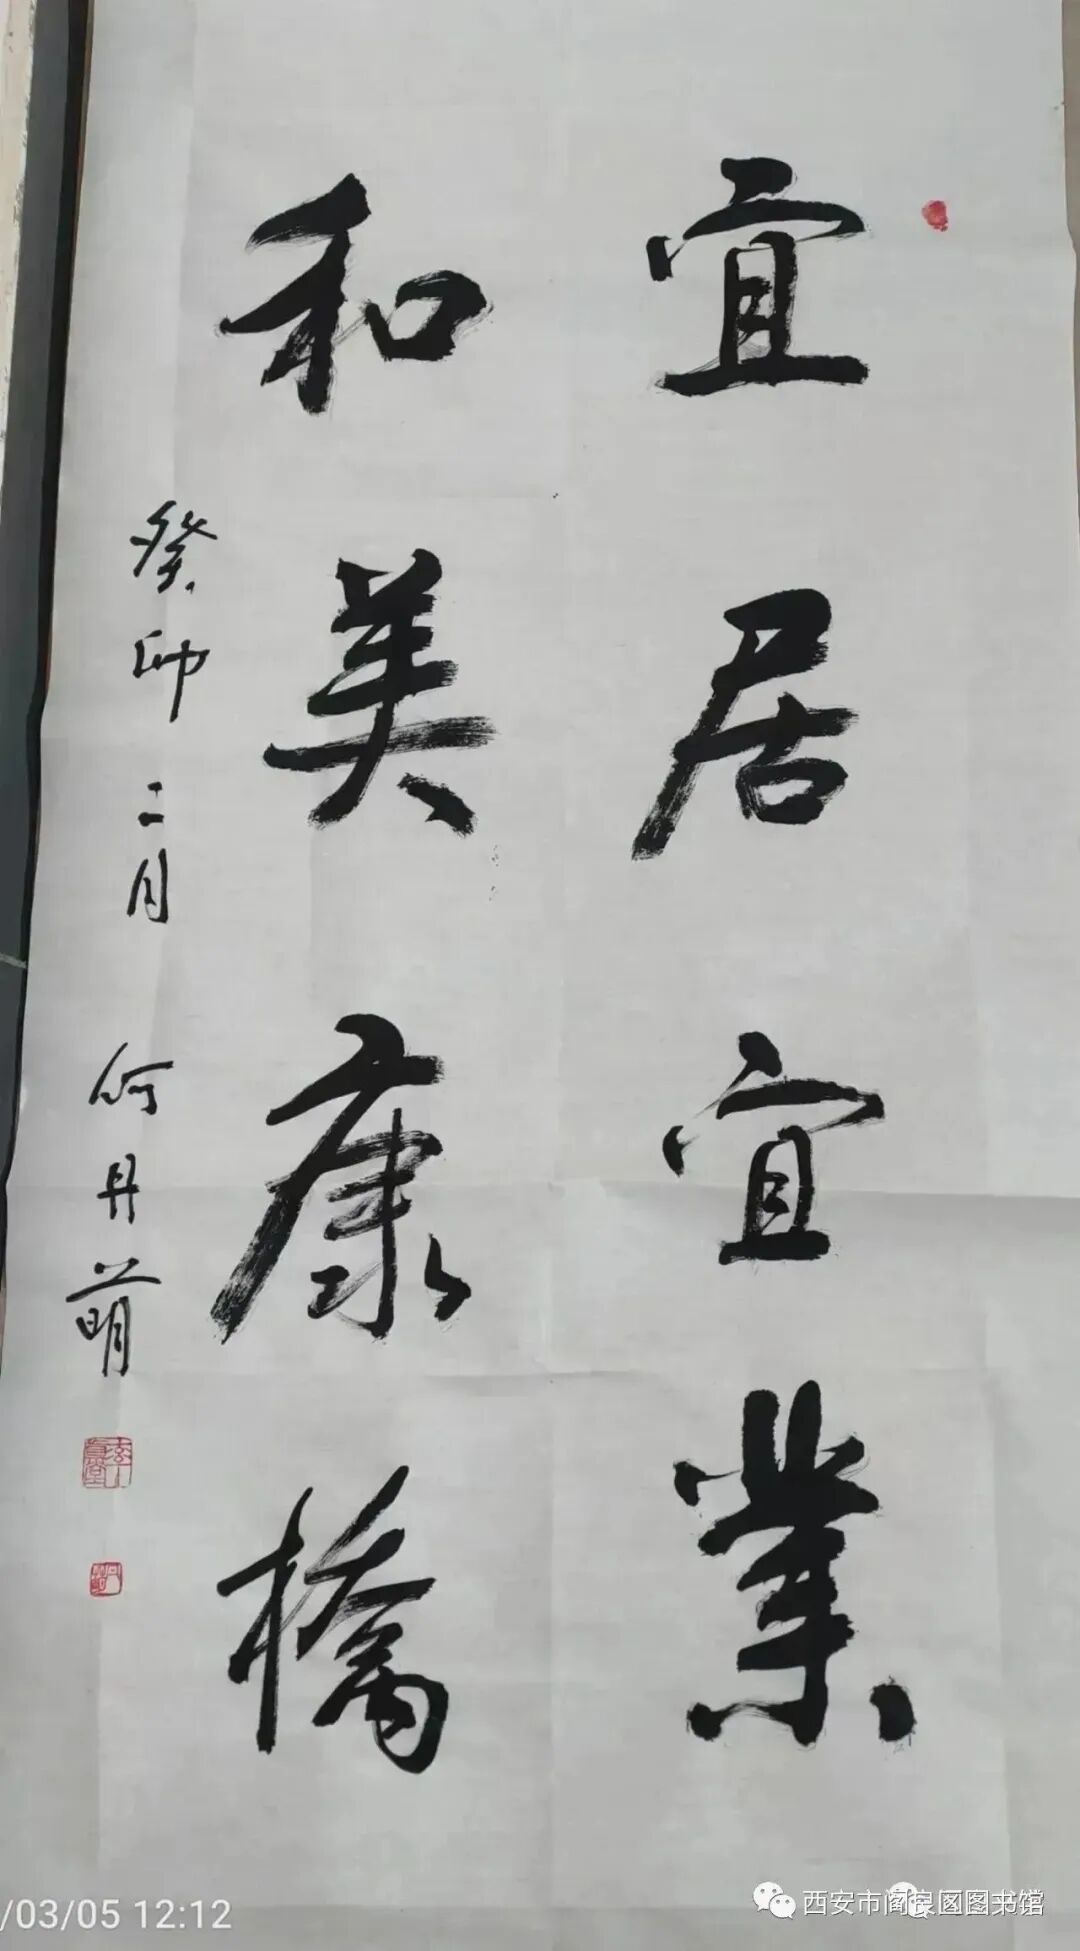 宜居宜業
和美康橋
癸卯二月 何丹萌
/03/05 12:12
西安市阎良区图书馆